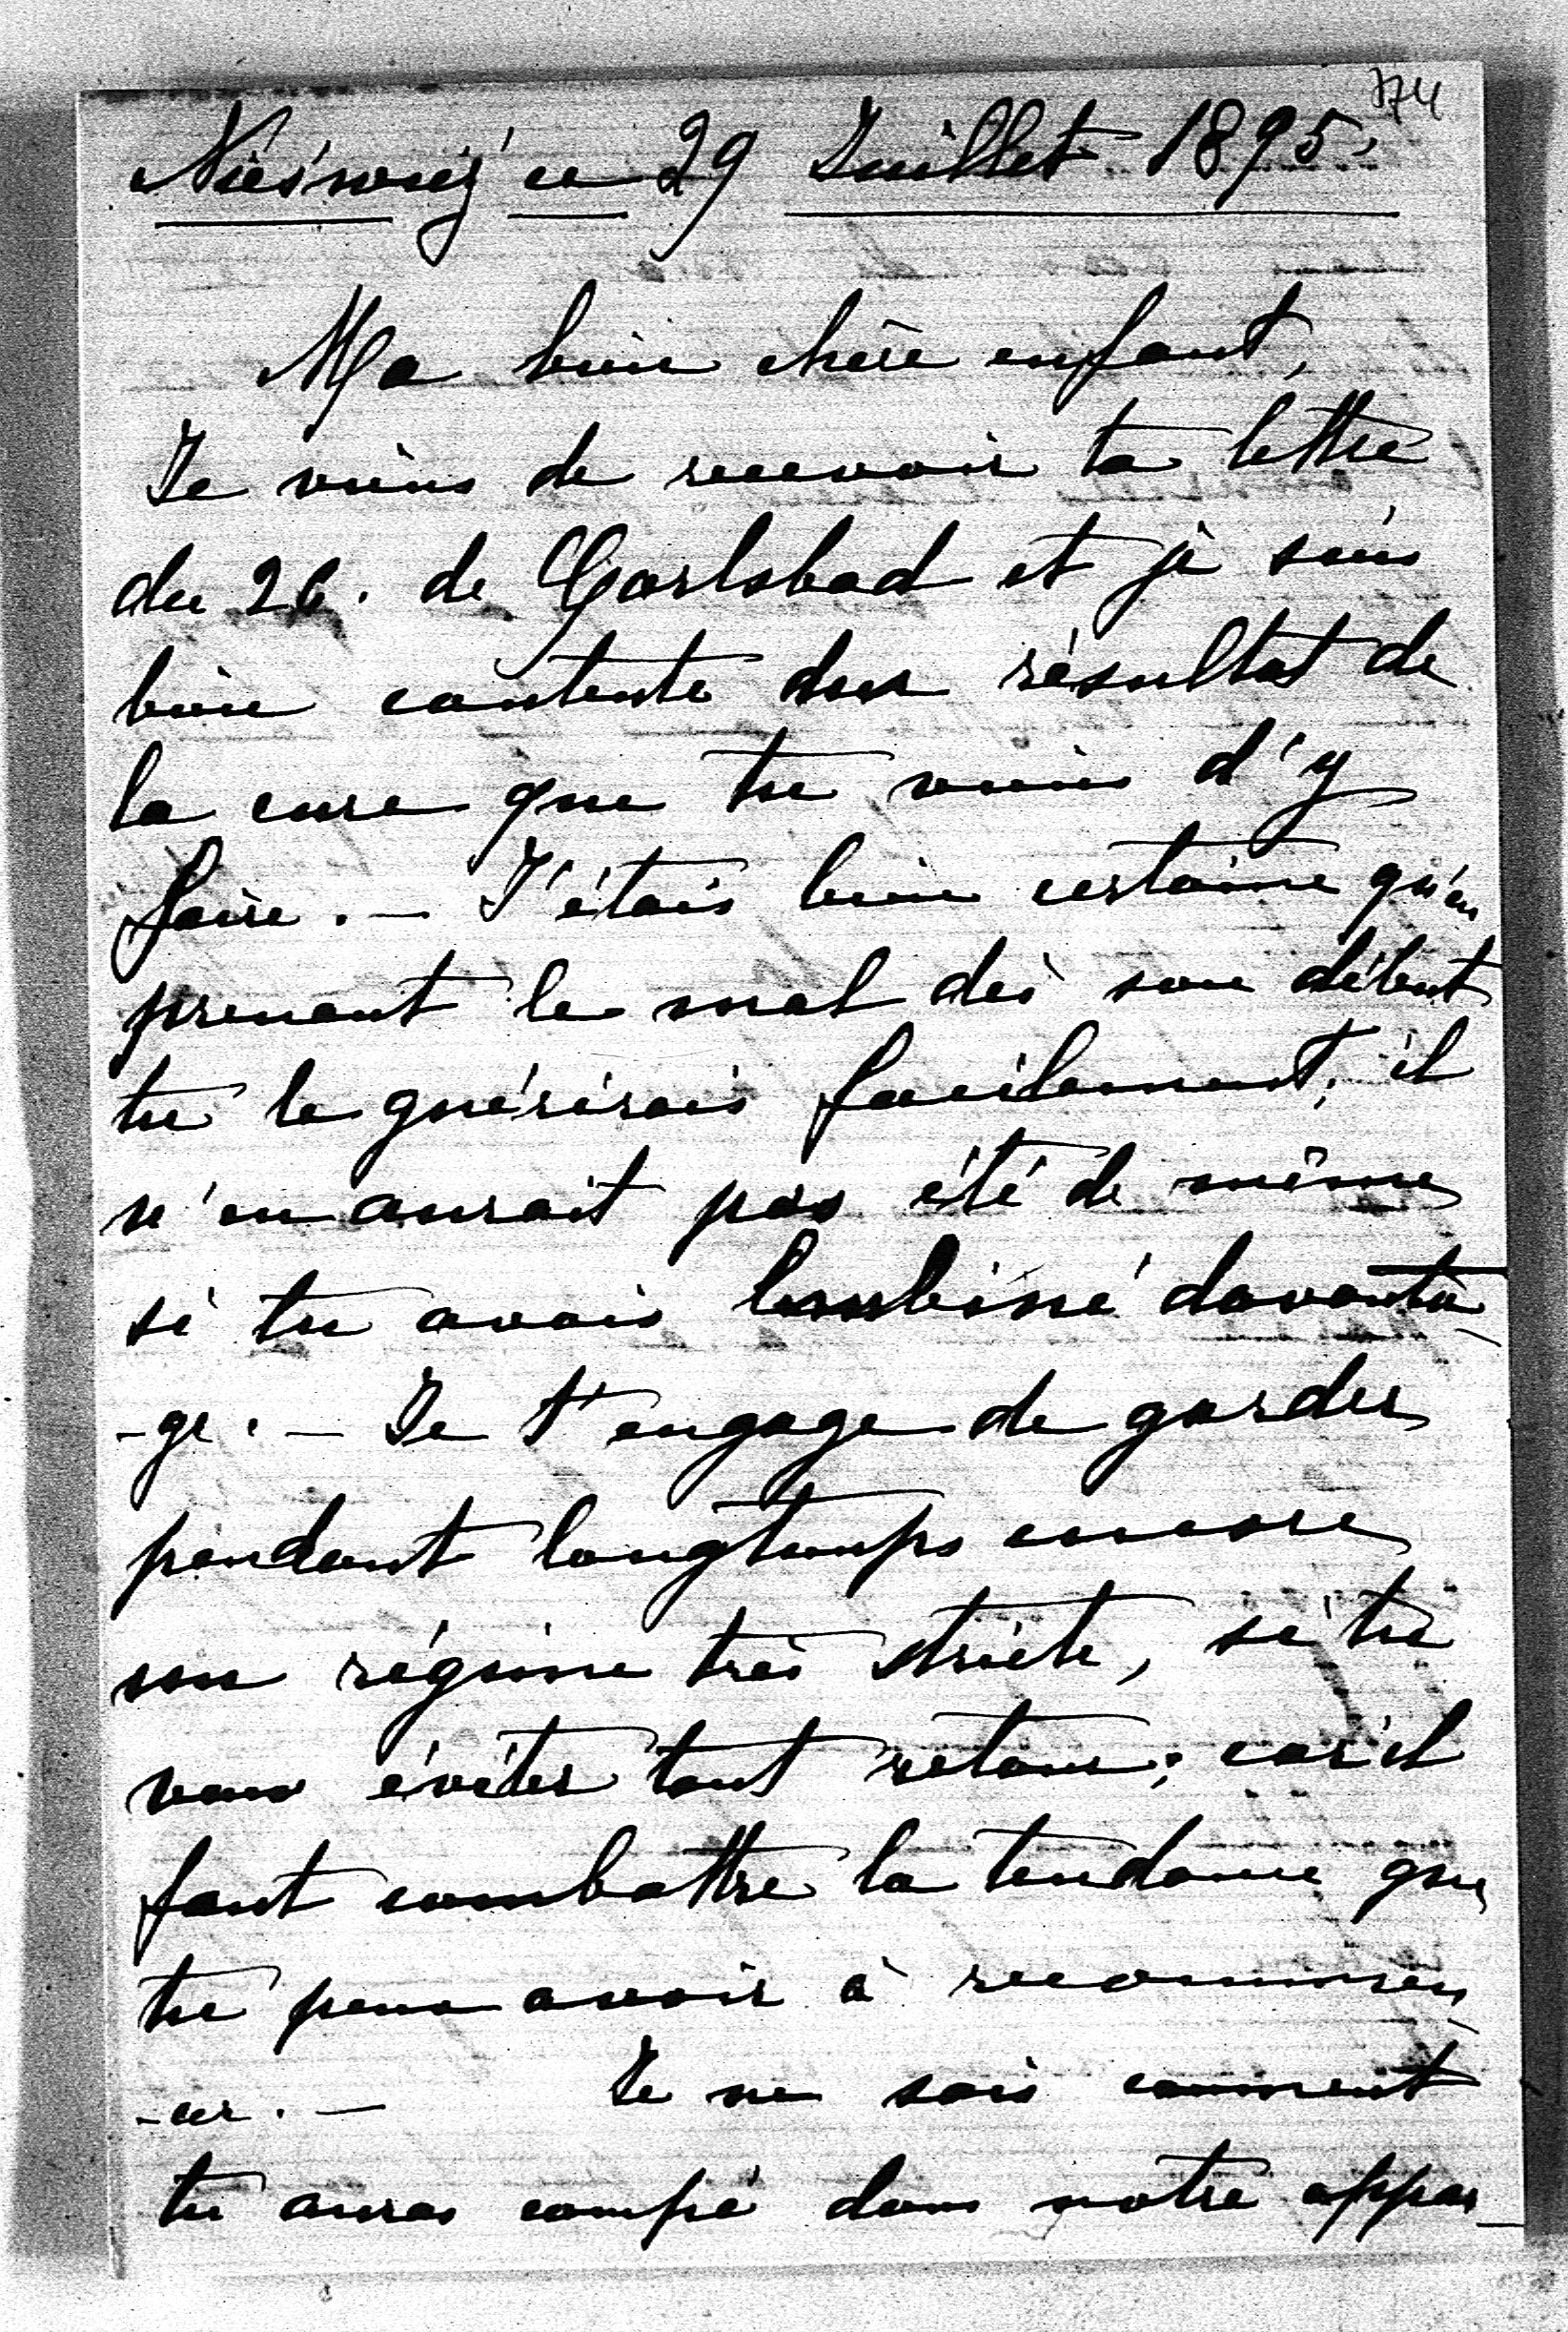 174
Nieśwież ce 29 Juillet 1895.
Ma bien chère enfant,
Je viens de recevoir ta lettre
du 26. de Carlsbad et je suis
bien contente du résultat de
la cure que tu viens d'y
faire. — J'étais bien certaine qu'en
prenant le mal dès son début
tu le guérirais facilement; il
n'en aurait pas été de même
si tu avais lambiné davanta
-ge. — Je t'engage de garder
pendant longtemps encore
un régime très stricte, si tu
veux éviter tout retour; car il
faut combattre la tendance que
tu peux avoir à recommen
-cer. — Je ne sais comment
tu auras campé dans notre appar_